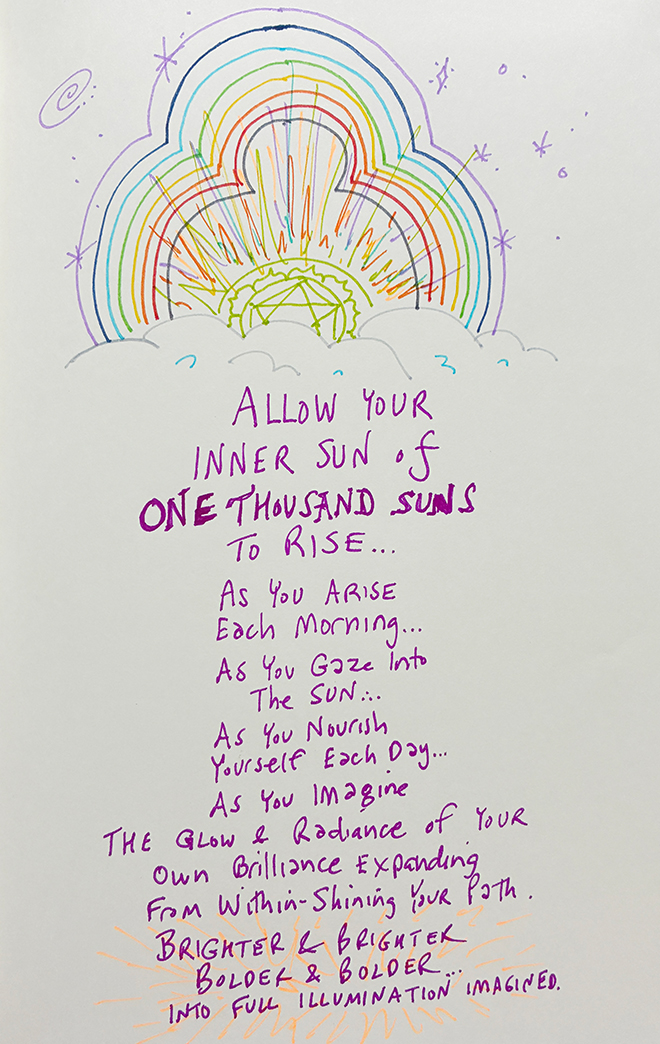 ALLOW YOUR
INNER SUN of
ONE THOUSAND SUNS
TO RISE...
As You ARISE
Each Morning...
As You Gaze Into
The SUN...
As You Nourish
Yourself Each Day...
As You Imagine
THE GLOW & Radiance of YOUR
Own Brilliance Expanding
From Within-Shining Your Path.
BRIGHTER & BRIGHTER
BOLDER & BOLDER...
INTO FULL ILLUMINATION IMAGINED.